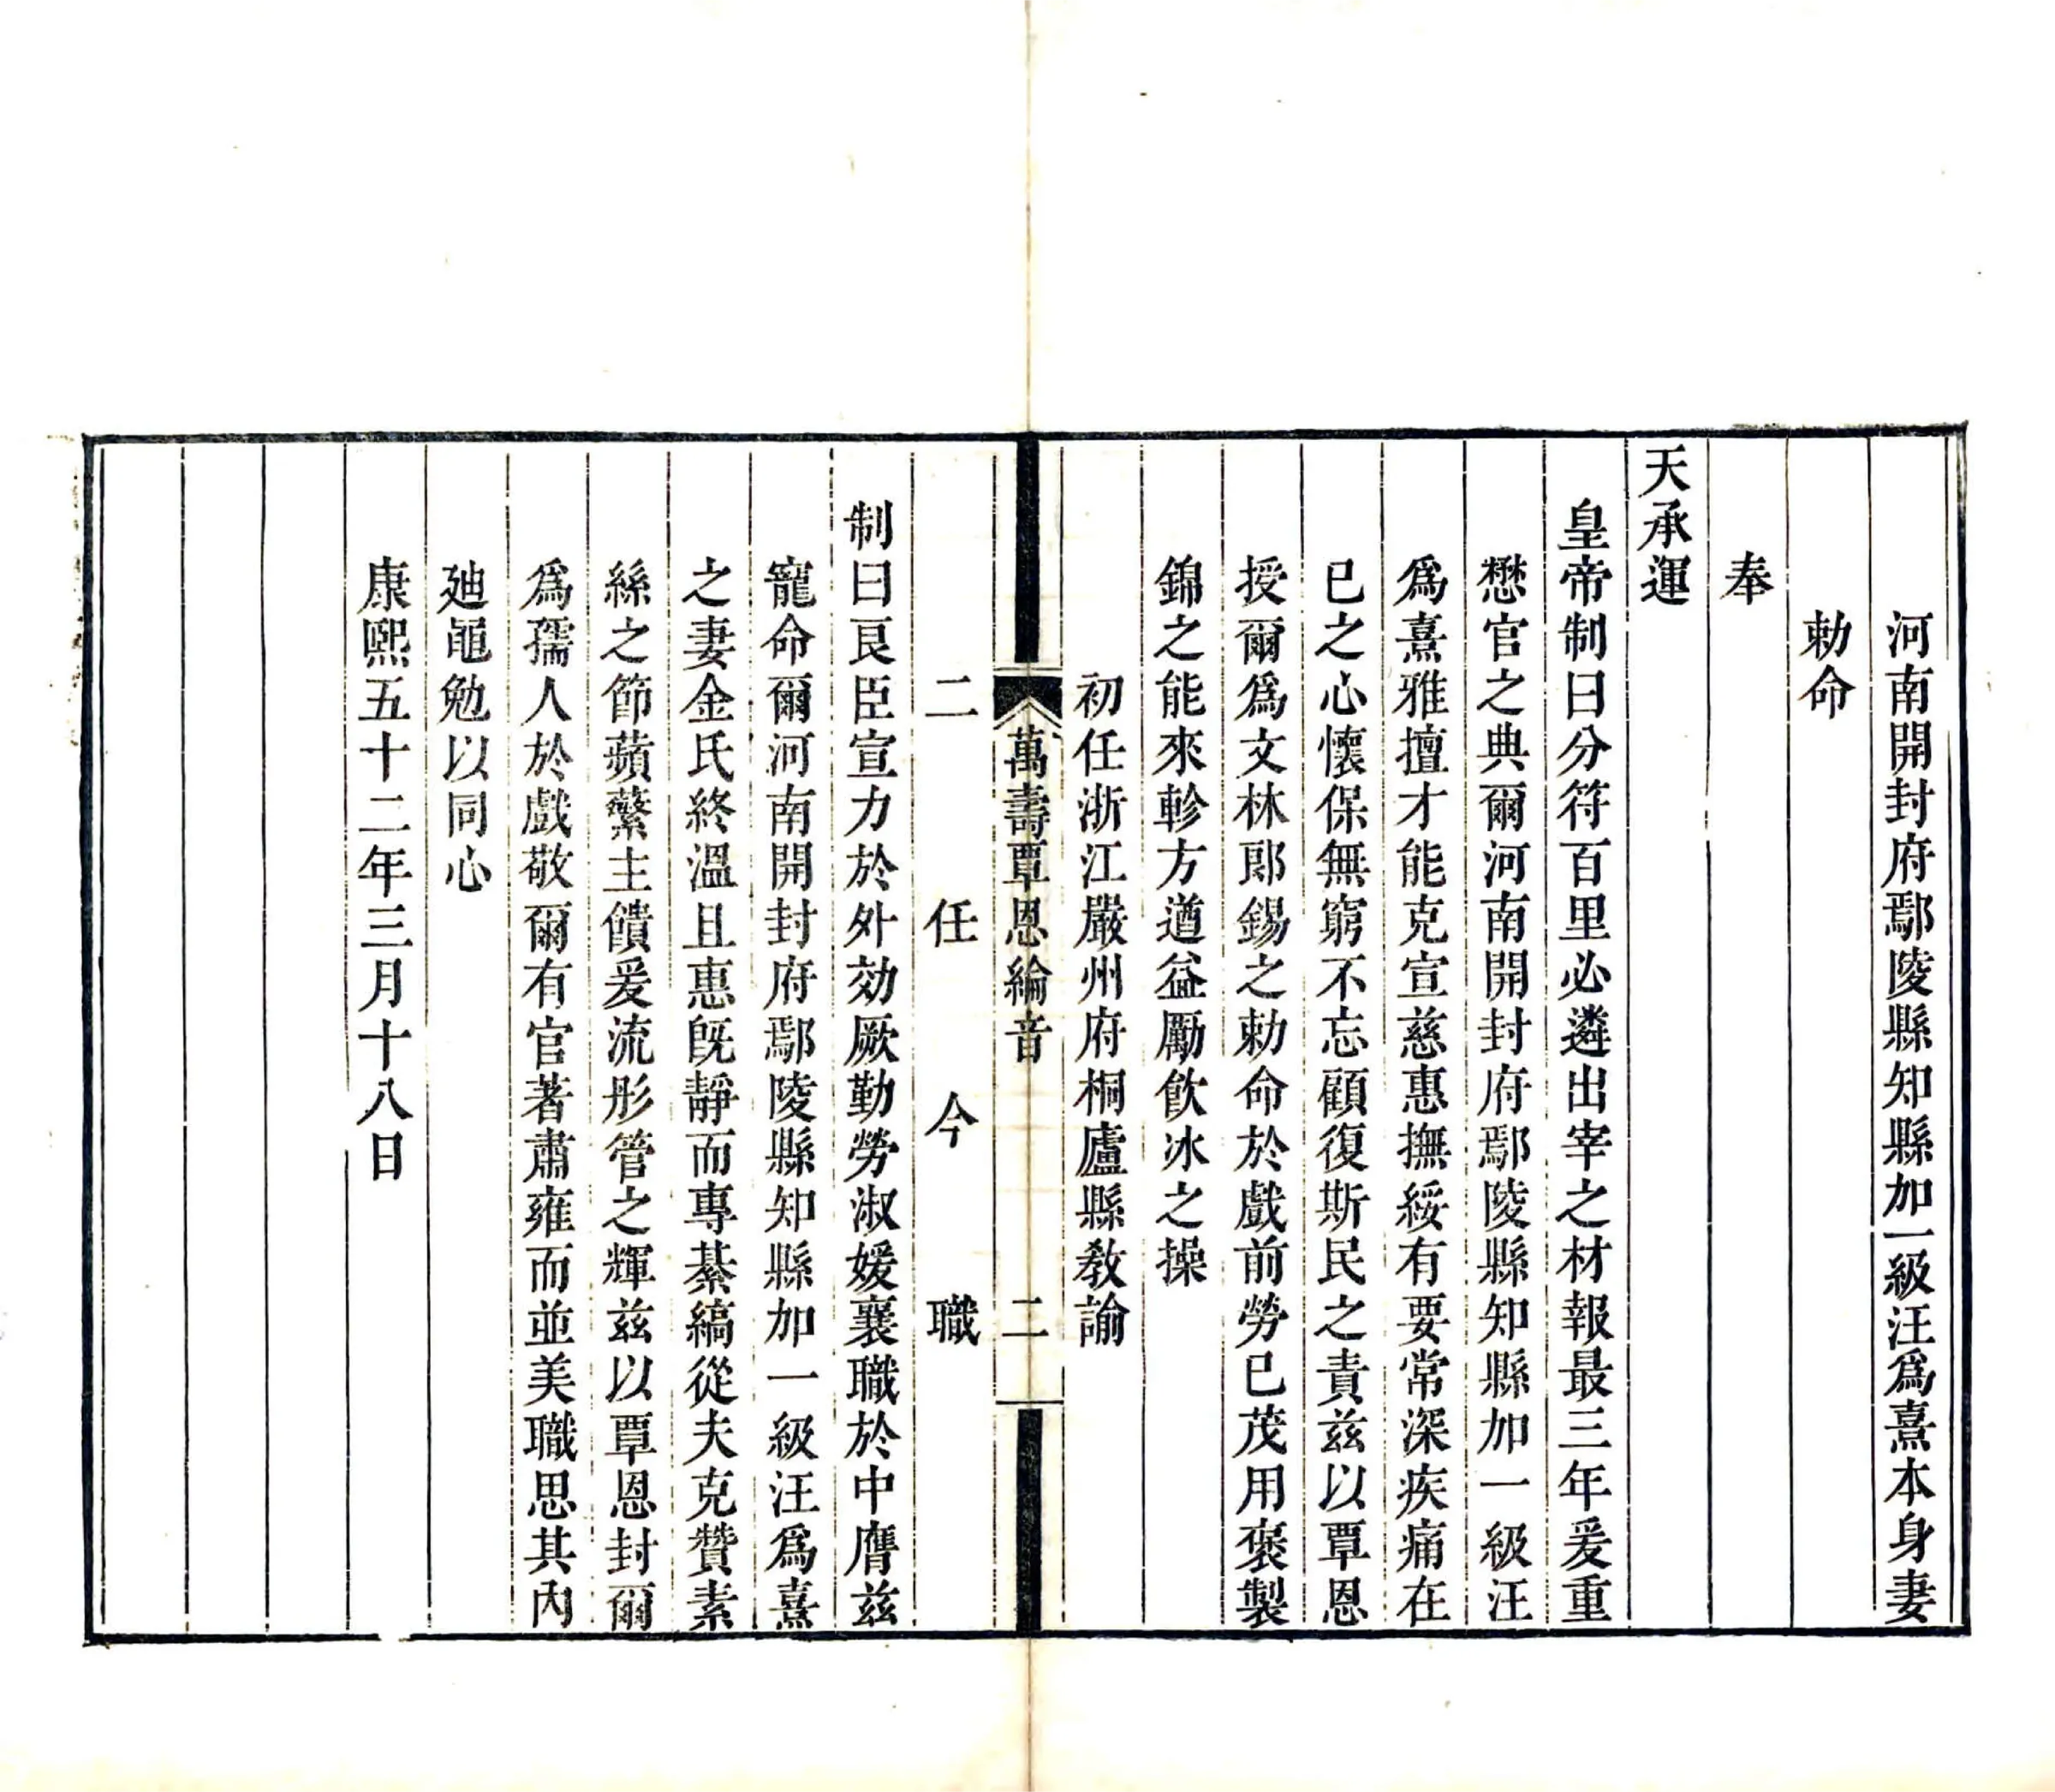 河南開封府鄢陵縣知縣加一級汪爲熹本身妻
勅命
奉
天承運
皇帝制曰分符百里必遴出宰之材報最三年爰重
懋官之典爾河南開封府鄢陵縣知縣加一級汪
爲熹雅擅才能克宣慈惠撫綏有要常深疾痛在
已之心懷保無窮不忘顧復斯民之責玆以覃恩
授爾爲文林郞錫之勅命於戲前勞已茂用褒製
錦之能來軫方遒益勵飮冰之操
初任浙江嚴州府桐廬縣敎諭
萬壽覃恩綸音 二
二任今職
制曰良臣宣力於外効厥勤勞淑媛襄職於中膺玆
寵命爾河南開封府鄢陵縣知縣加一級汪爲熹
之妻金氏終溫且惠旣靜而專綦縞從夫克贊素
絲之節蘋蘩主饋爰流彤管之輝玆以覃恩封爾
爲孺人於戲敬爾有官著肅雍而並美職思其內
廸黽勉以同心
康熙五十二年三月十八日